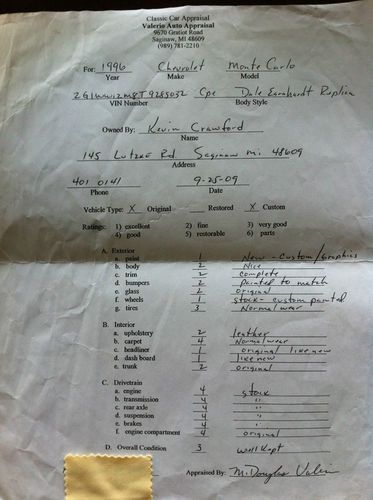 Classic Car Appraisal
Valerio Auto Appraisal
9670 Gratiot Road
Saginaw, MI 48609
(989) 781-2210
For: 1996 Chevrolet Monte Carlo
Year Make Model
Cpe Dale Earnhardt Replica
VIN Number Body Style
Owned By: Kevin Crawford
Name
145 Lutzke Rd Saginaw Mi 48609
Address
401 0141 9-25-09
Phone Date
Vehicle Type: X Original Restored X Custom
Ratings: 1) excellent 2) fine 3) very good
4) good 5) restorable 6) parts
A. Exterior
a. paint 1 New - Custom/Graphics
b. body 2 Nice
c. trim 2 Complete
d. bumpers 2 painted to match
e. glass 2 original
f. wheels 1 stock - custom painted
g. tires 3 Normal wear
B. Interior
a. upholstery 2 leather
b. carpet 4 Normal wear
c. headliner 1 original like new
d. dash board 1 like new
e. trunk 2 original
C. Drivetrain
a. engine 4 stock
b. transmission 4 "
c. rear axle 4 "
d. suspension 4 "
e. brakes 4 "
f. engine compartment 4 original
D. Overall Condition 3 well kept
Appraised By: M. Douglas